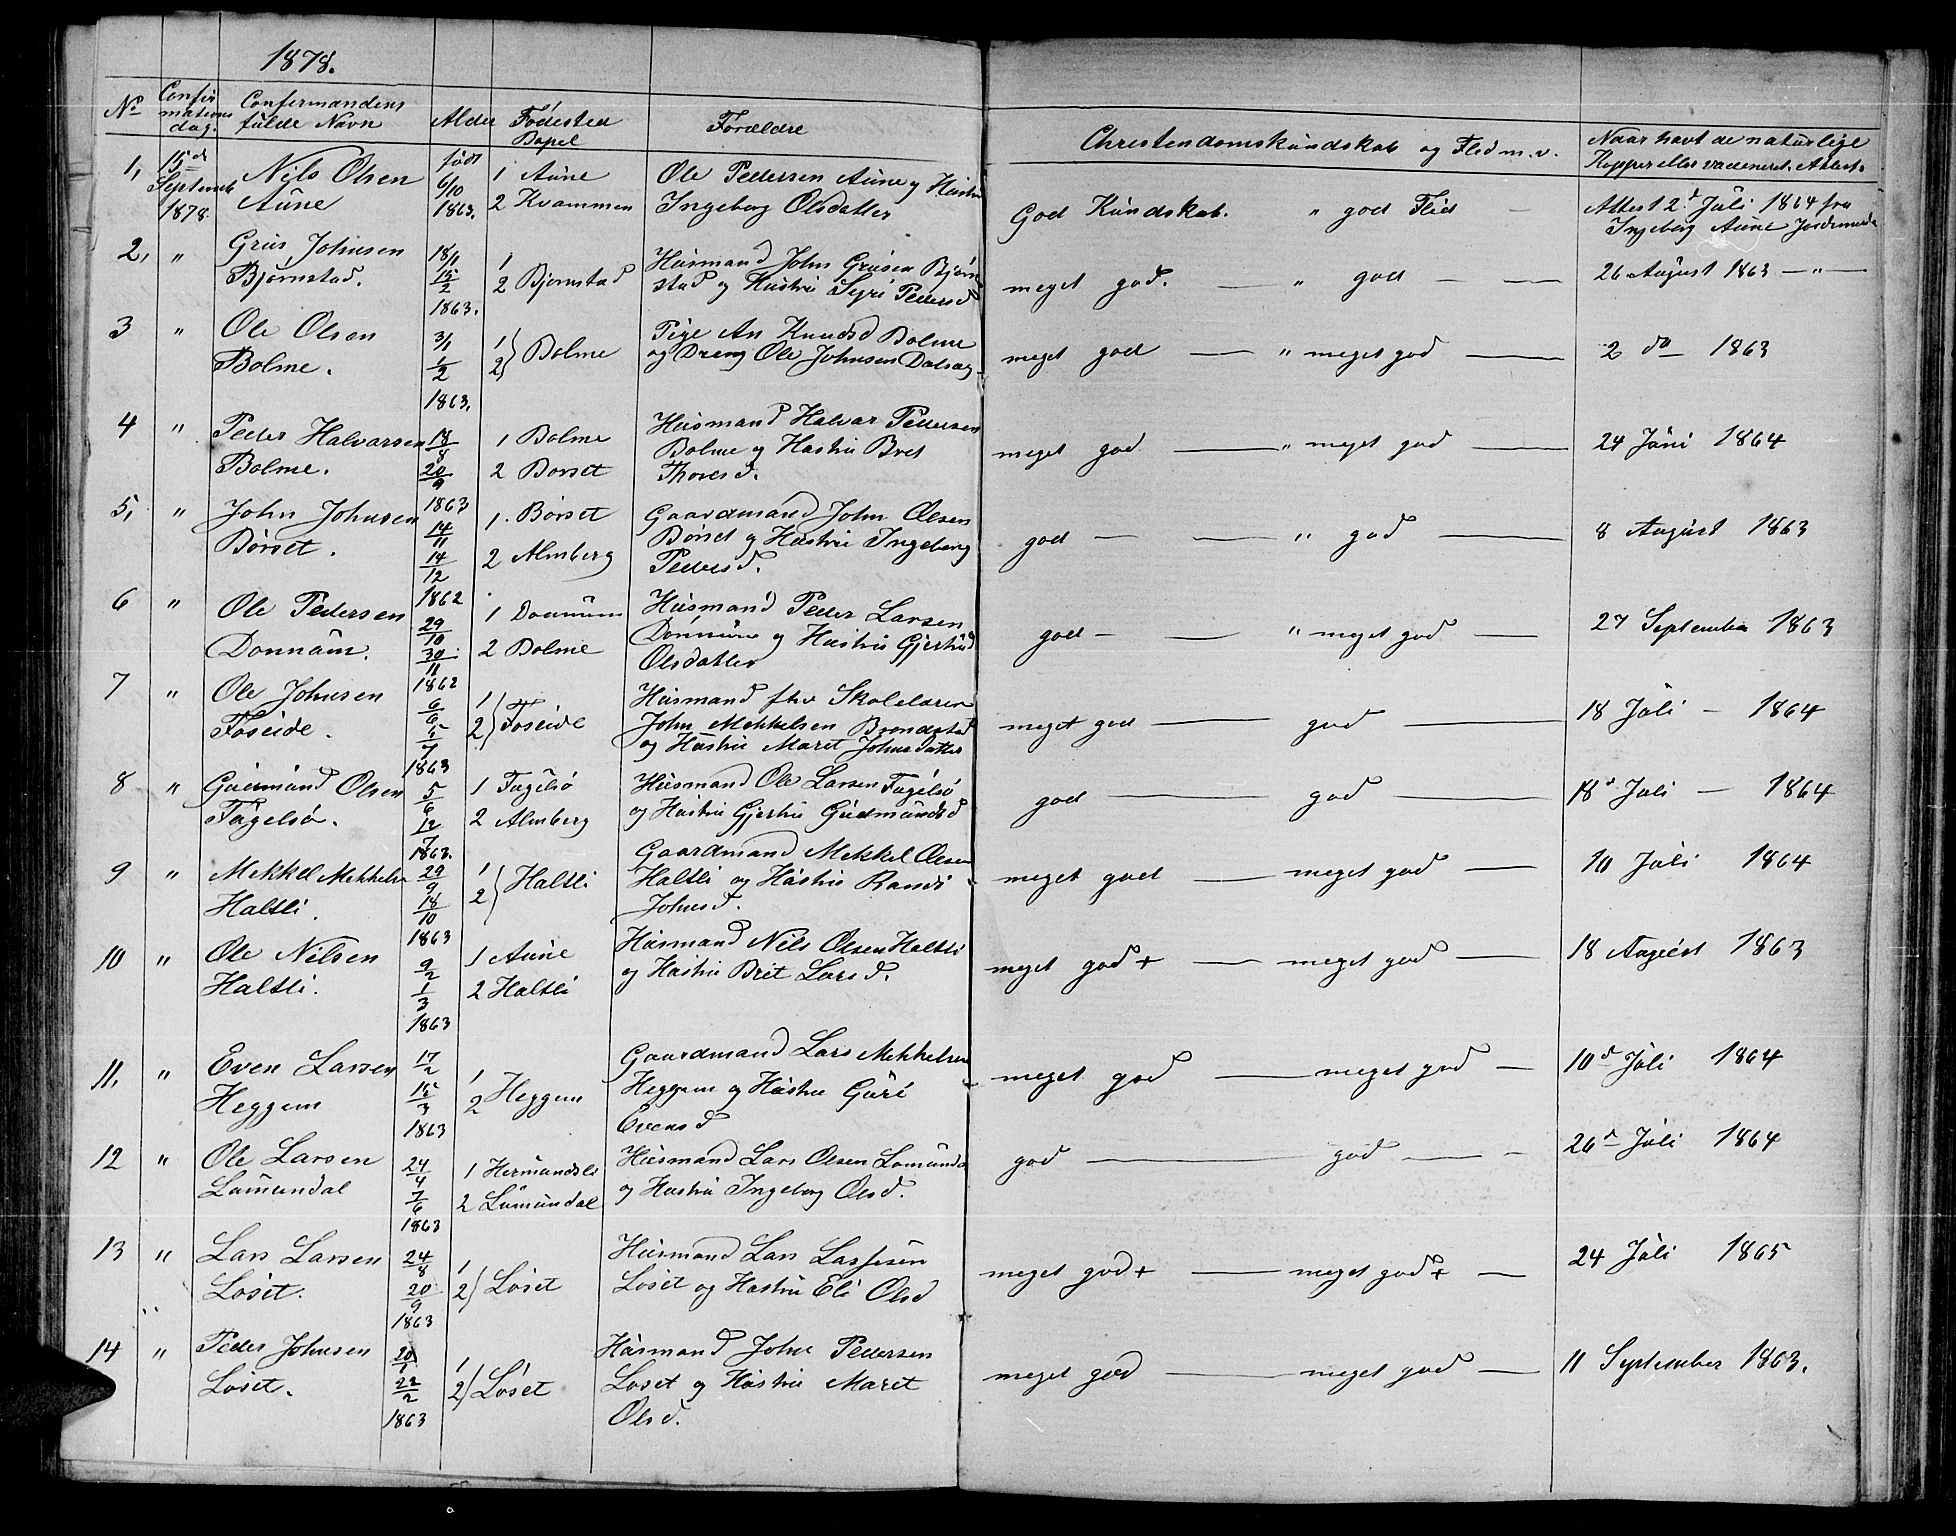 1878.
No Confir mations dag. Confermandens fulde Navn Alder Födested Bopel Forældre Christendomskundskab og Flid m. v. Naar havt de naturlige Kopper eller vaccineret. Attest.
1, 15d September 1878 Nils Olsen Aune født 6/10 1863. 1 Aune 2 Kvammen Ole Pedersen Aune og Hustru Ingeborg Olsdatter God Kundskab. " god Flid — Attest 2d Juli 1864 fra Ingeborg Aune Jordemoder
2, " Johnsen Bjørnstad. 18/1 15/2 1863. 1 2 Bjørnstad Husmand John Bjørnstad og Hustru Pedersd meget god. — " god — — 26 August 1863 — " —
3 " Ole Olsen Bolme. 3/1 1/2 1863. 1 2 } Bolme Pige An Knudsd Bolme og Dreng Ole Johnsen meget god — " meget god — 2 do 1863
4 " Peder Halvarsen Bolme. 18/8 20/9 1863 1 Bolme 2 Børset Husmand Halvar Pedersen Bolme og Hustru Bret Thoresd. meget god — " meget god — 24 Juni 1864
5, " John Johnsen Børset. 14/11 14/12 1862 1. Børset 2 Almberg Gaardmand John Olsen Børset og Hustru Ingeborg Pedersd. god — — " god — 8 August 1863
6 " Ole Pedersen Donnum. 29/10 30/11 1862 1 Donnum 2 Bolme Husmand Peder Larsen Donnum og Hustru Gjertrud Olsdatter god — — " meget god — 27 September 1863
7 " Ole Johnsen Foseide. 6/6 5/7 1863 1 2 } Foseide Husmand fhv Skolelærer John Mekkelsen og Hustru Maret Johnsdatter meget god — god — 18 Juli — 1864
8 " Gudmund Olsen Fugelsø. 5/6 12/7 1863. 1 Fugelsø 2 Almberg Husmand Ole Larsen Fugelsø og Hustru Gjertru Gudmundsd god — god — 18d Juli — 1864
9 " Mekkel Mekkelsn Haltli. 29/9 18/10 1863 1 2 } Haltli Gaardmand Mekkel Olsen Haltli og Hustru Randi Johnsd. meget godt — meget god — 10 Juli 1864
10 " Ole Nilsen Haltli. 9/2 1/3 1863 1 Aune 2 Haltli Husmand Nils Olsen Haltli og Hustru Brit Larsd. meget god + — meget god — 18 August 1863
11, " Even Larsen Heggem 17/2 15/3 1863 1 2 Heggem Gaardmand Lars Mekkelsen Heggem og Hustru Guri Evensd meget god — meget god — 10d Juli 1864
12 " Ole Larsen Lumundal 24/4 7/6 1863 1 Hermundsli 2 Lumundal Husmand Lars Olsen Lomunda og Hustru Ingeborg Olsd. god — god — - 26d Juli 1864
13 " Lars Larsen Løset. 24/8 20/9 1863 1 2 } Løset Husmand Lars Larssen Løset og Hustru Eli Olsd meget god + — meget god + — 24 Juli 1865
14 " Peder Johnsen Løset. 20/1 22/2 1863 1 2 } Løset Husmand John Pedersen Løset og Hustru Maret Olsd. meget god — meget god — 11 September 1863.